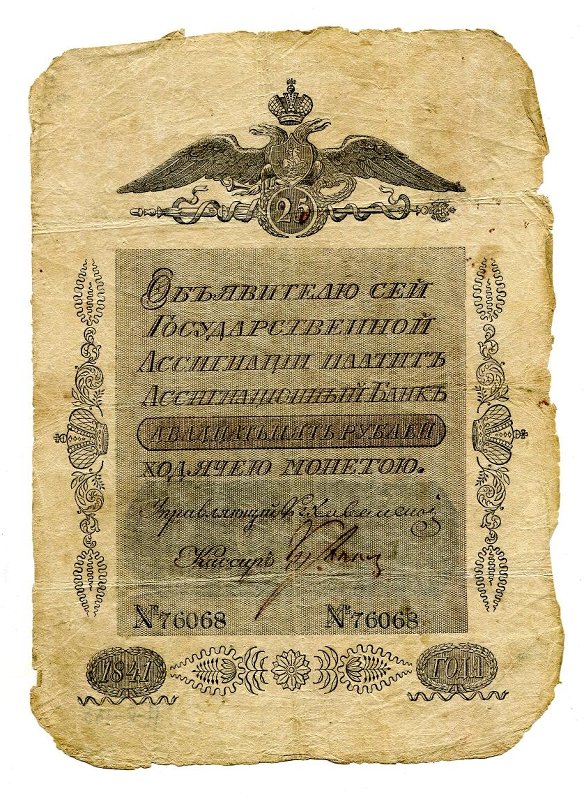 25
Объявителю сей
Государственной
Ассигнаціи платитъ
Ассигнаціонный Банкъ
двадцать пять рублей
ходячею монетою.
Управляющій
Кассиръ
№76068 №76068
1841 года